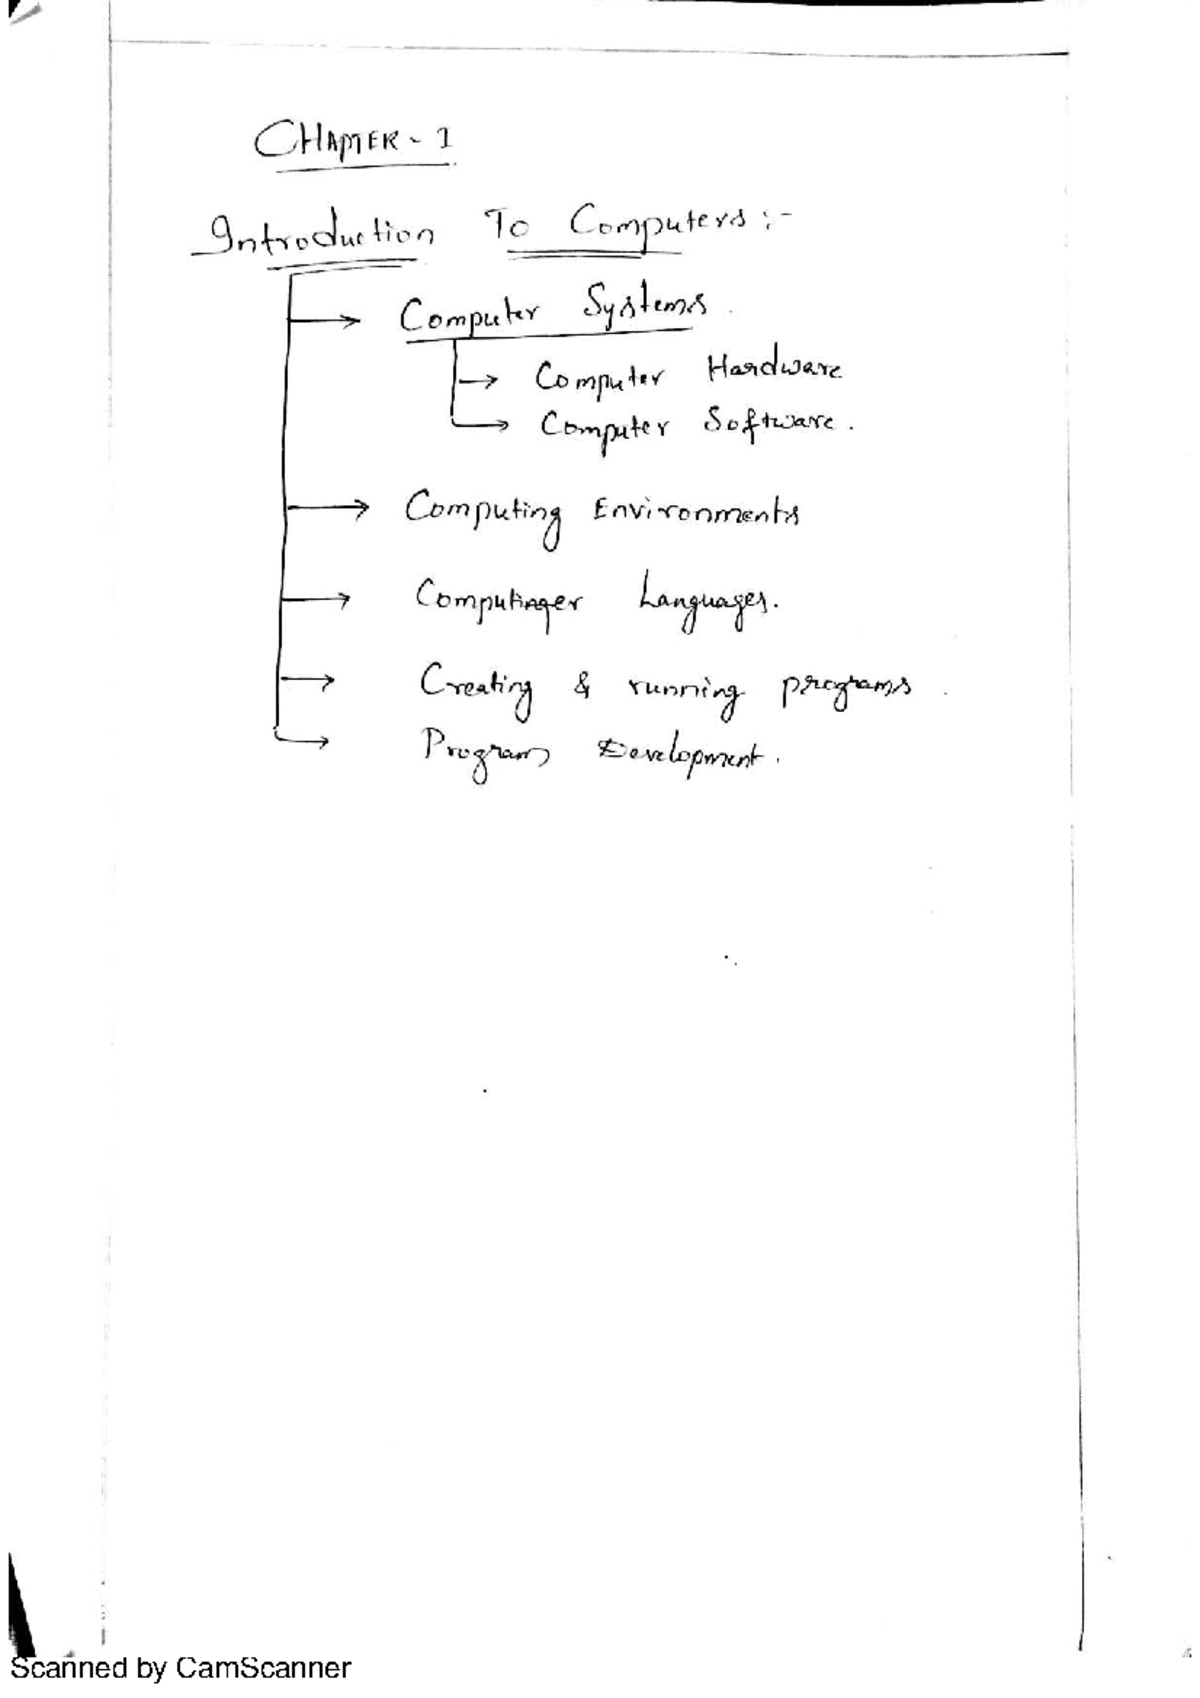 CHAPTER - 1
Introduction To Computers :-
Computer Systems.
Computer Hardware
Computer Software.
Computing Environments
Computer Languages.
Creating & running programs.
Program Development.
Scanned by CamScanner